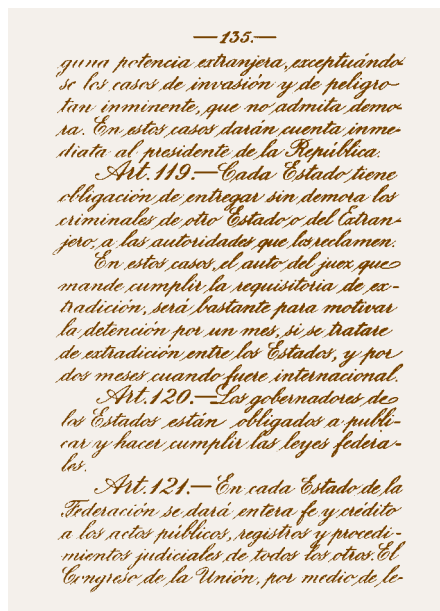 — 135. —
guna potencia extranjera, exceptuándo-
se los casos de invasión y de peligro
tan inminente, que no admita demo-
ra. En estos casos darán cuenta inme-
diata al presidente de la República.
Art. 119.— Cada Estado tiene
obligación de entregar sin demora los
criminales de otro Estado o del Extran-
jero, a las autoridades que los reclamen.
En estos casos, el auto del juez que
mande cumplir la requisitoria de ex-
tradición, será bastante para motivar
la detención por un mes, si se tratare
de extradición entre los Estados, y por
dos meses cuando fuere internacional.
Art. 120.— Los gobernadores de
los Estados están obligados a publi-
car y hacer cumplir las leyes federa-
les.
Art. 121.— En cada Estado de la
Federación se dará entera fe y crédito
a los actos públicos, registros y procedi-
mientos judiciales de todos los otros. El
Congreso de la Unión, por medio de le-